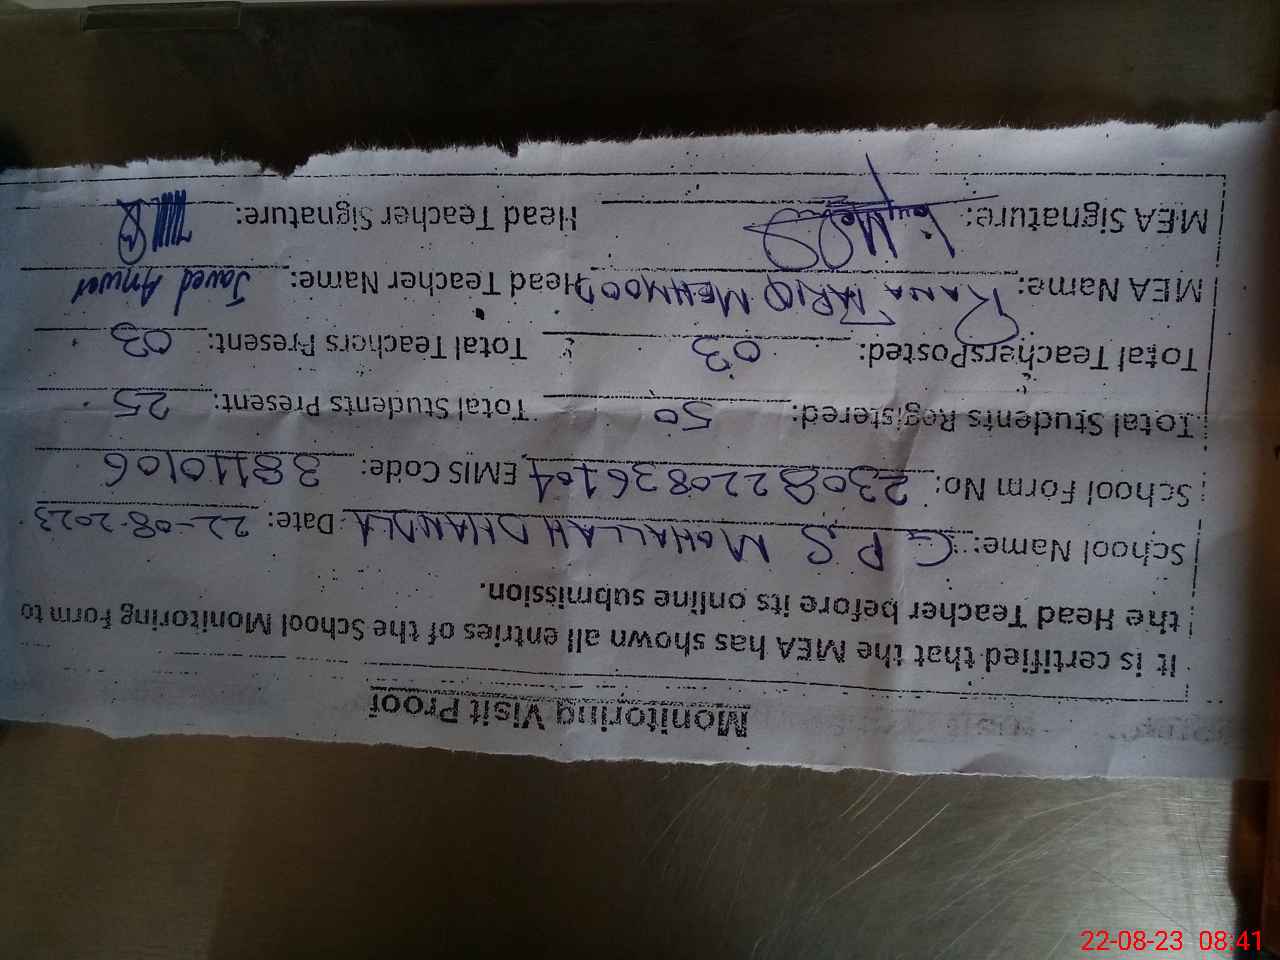 Monitoring Visit Proof
It is certified that the MEA has shown all entries of the School Monitoring Form to
the Head Teacher before its online submission.
School Name: G P.S MOHALLAH DHANDLA Date: 22-08-2023
School Form No: 23082208361704 EMIS Code: 38110106
Total Students Registered: 50 Total Students Present: 25
Total TeachersPosted: 03 Total Teachers Present: 03
MEA Name: RANA TARIQ MEHMOOD Head Teacher Name: Javed Anwer
MEA Signature: Head Teacher Signature:
22-08-23 08:41